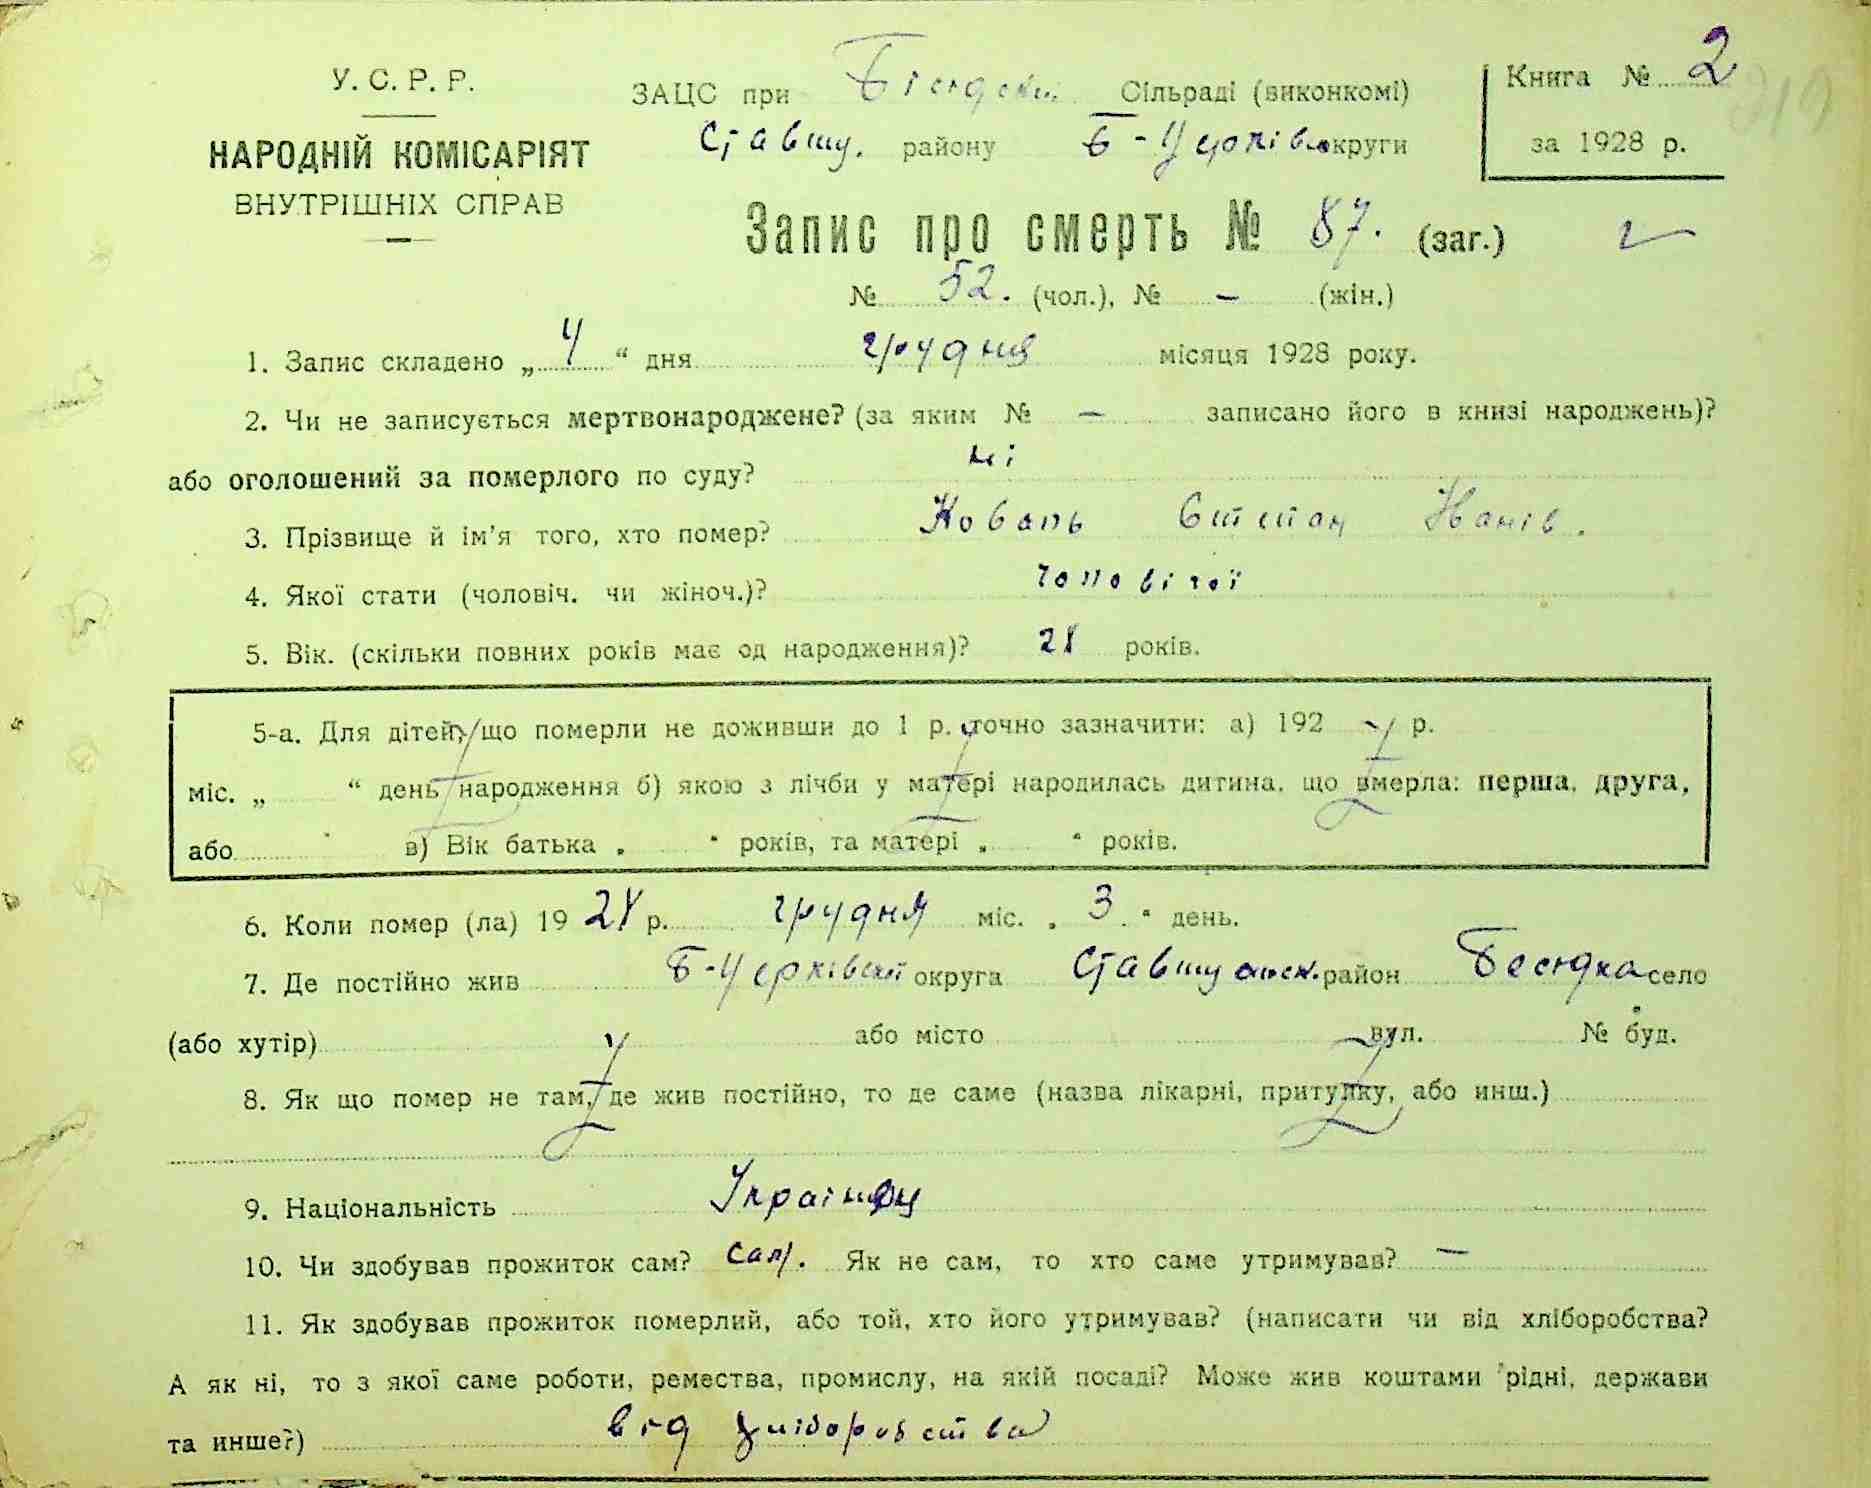 У. С. Р. Р.
НАРОДНІЙ КОМІСАРІЯТ
ВНУТРІШНІХ СПРАВ
ЗАЦС при Бесюдській Сільраді (виконкомі)
Ставищ. району Б-Церків. округи
Книга № 2
за 1928 р.
Запис про смерть № 87. (заг.)
№ 52. (чол.), № – (жін.)
1. Запис складено „ 4 “ дня грудня місяця 1928 року.
2. Чи не записується мертвонароджене? (за яким № – записано його в книзі народжень)?
або оголошений за померлого по суду? ні
3. Прізвище й ім'я того, хто помер? Коваль Степан Іванів.
4. Якої стати (чоловіч. чи жіноч.)? чоловічої
5. Вік. (скільки повних років має од народження)? 28 років.
5-а. Для дітей, що померли не доживши до 1 р. точно зазначити: а) 192 р.
міс. „ “ день народження б) якою з лічби у матері народилась дитина, що вмерла: перша, друга,
або в) Вік батька „ “ років, та матері „ “ років.
6. Коли помер (ла) 19 28 р. грудня міс. „ 3 “ день.
7. Де постійно жив Б-Церківської округа Ставищанськ. район Бесюдка село
(або хутір) або місто вул. № буд.
8. Як що помер не там, де жив постійно, то де саме (назва лікарні, притулку, або инш.)
9. Національність Українець
10. Чи здобував прожиток сам? сам. Як не сам, то хто саме утримував? –
11. Як здобував прожиток померлий, або той, хто його утримував? (написати чи від хліборобства?
А як ні, то з якої саме роботи, ремества, промислу, на якій посаді? Може жив коштами рідні, держави
та инше?) від хліборобства